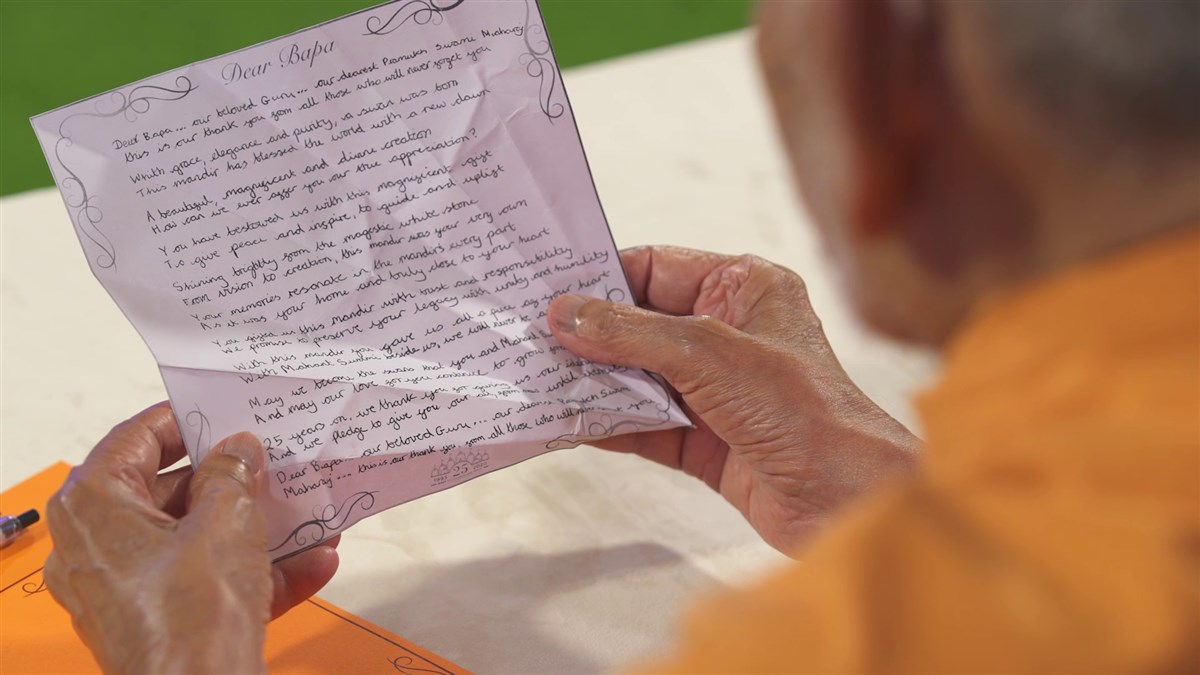 Dear Bapa
Dear Bapa... our beloved Guru... our dearest Pramukh Swami Maharaj
this is our thank you from all those who will never forget you
Whith grace, elegance and purity, a swan was born
This mandir has blessed the world with a new dawn
A beautiful, magnificent and divine creation
How can we ever offer you our true appreciation?
You have bestowed us with this magnificent gift
To give peace and inspire, to guide and uplift
Shining brightly from the magestic white stone
From vision to creation, this mandir was your very own
Your memories resonate in the mandir's every part
As it was your home and truly close to your heart
You gifted us this mandir with trust and responsibility
We promise to preserve your legacy with unity and humility
With this mandir you gave us all a piece of your heart
With Mahant Swami beside us, we will never be a
May we become the swans that you and Mahant
And may our love for you continue to grow
25 years on, we thank you for giving us our
And we pledge to give you our until
Dear Bapa... our beloved Guru... our Swami
Maharaj... this is our thank you from all those who will you
25